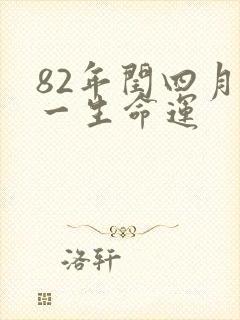 82年閏四月
一生命運
洛轩